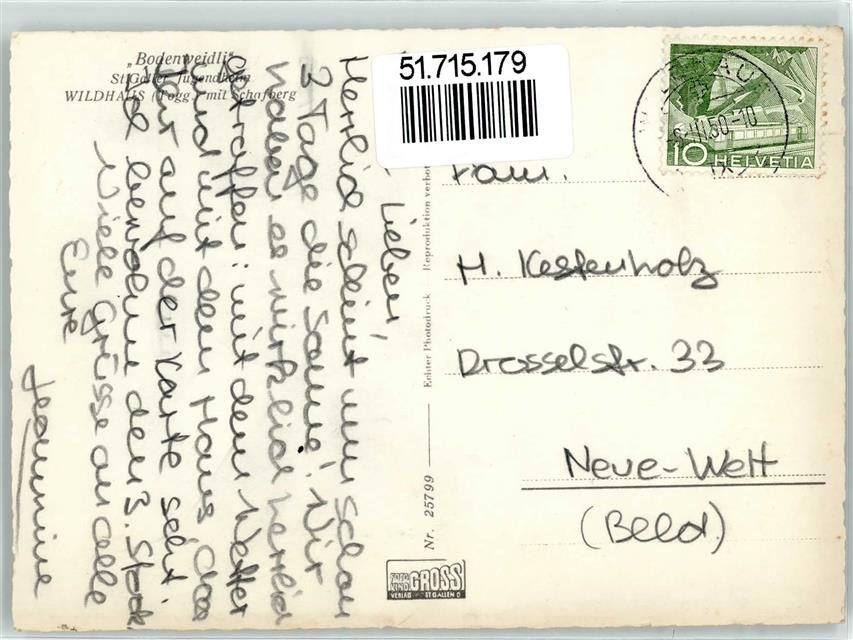 „Bodenweidli“
St. Galler Jugendheim
WILDHAUS (Togg.) mit Schafberg
51.715.179
Lieben,
Herrlich scheint nun schon
3 Tage die Sonne! Wir
haben es wirklich herrlich
getroffen: mit dem Wetter
und mit dem Haus, das
Ihr auf der Karte seht.
Wir bewohnen den 3. Stock.
Viele Grüsse an alle
Eure
Jeannine
Nr. 25799
Echter Photodruck
Reproduktion verboten
FOTO GROSS
VERLAG ST GALLEN O
10 HELVETIA
WILDHAUS
III.50-10
Fam.
H. Kestenholz
Drosselstr. 33
Neue-Welt
(Blld.)